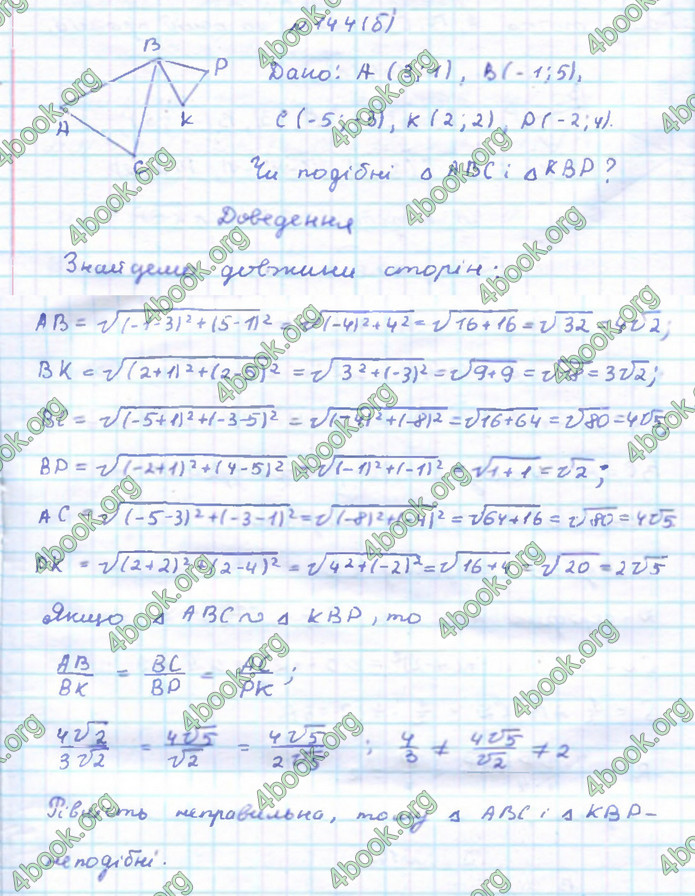 №144(б)
B
P
K
A
C
Дано: A (3; 1), B(-1; 5),
C(-5; -3), K(2; 2), P(-2; 4).
Чи подібні △ ABC і △ KBP?
Доведення
Знайдемо довжини сторін:
AB = √((-1-3)²+(5-1)²) = √((-4)²+4²) = √(16+16) = √32 = 4√2;
BK = √((2+1)²+(2-5)²) = √(3²+(-3)²) = √(9+9) = √18 = 3√2;
BC = √((-5+1)²+(-3-5)²) = √((-4)²+(-8)²) = √(16+64) = √80 = 4√5
BP = √((-2+1)²+(4-5)²) = √((-1)²+(-1)²) = √(1+1) = √2;
AC = √((-5-3)²+(-3-1)²) = √((-8)²+(-4)²) = √(64+16) = √80 = 4√5
PK = √((2+2)²+(2-4)²) = √(4²+(-2)²) = √(16+4) = √20 = 2√5
Якщо △ ABC ~ △ KBP, то
AB/BK = BC/BP = AC/PK;
4√2/3√2 = 4√5/√2 = 4√5/2√5; 4/3 ≠ 4√5/√2 ≠ 2
Рівність неправильна, тому △ ABC і △ KBP-
неподібні.
4book.org